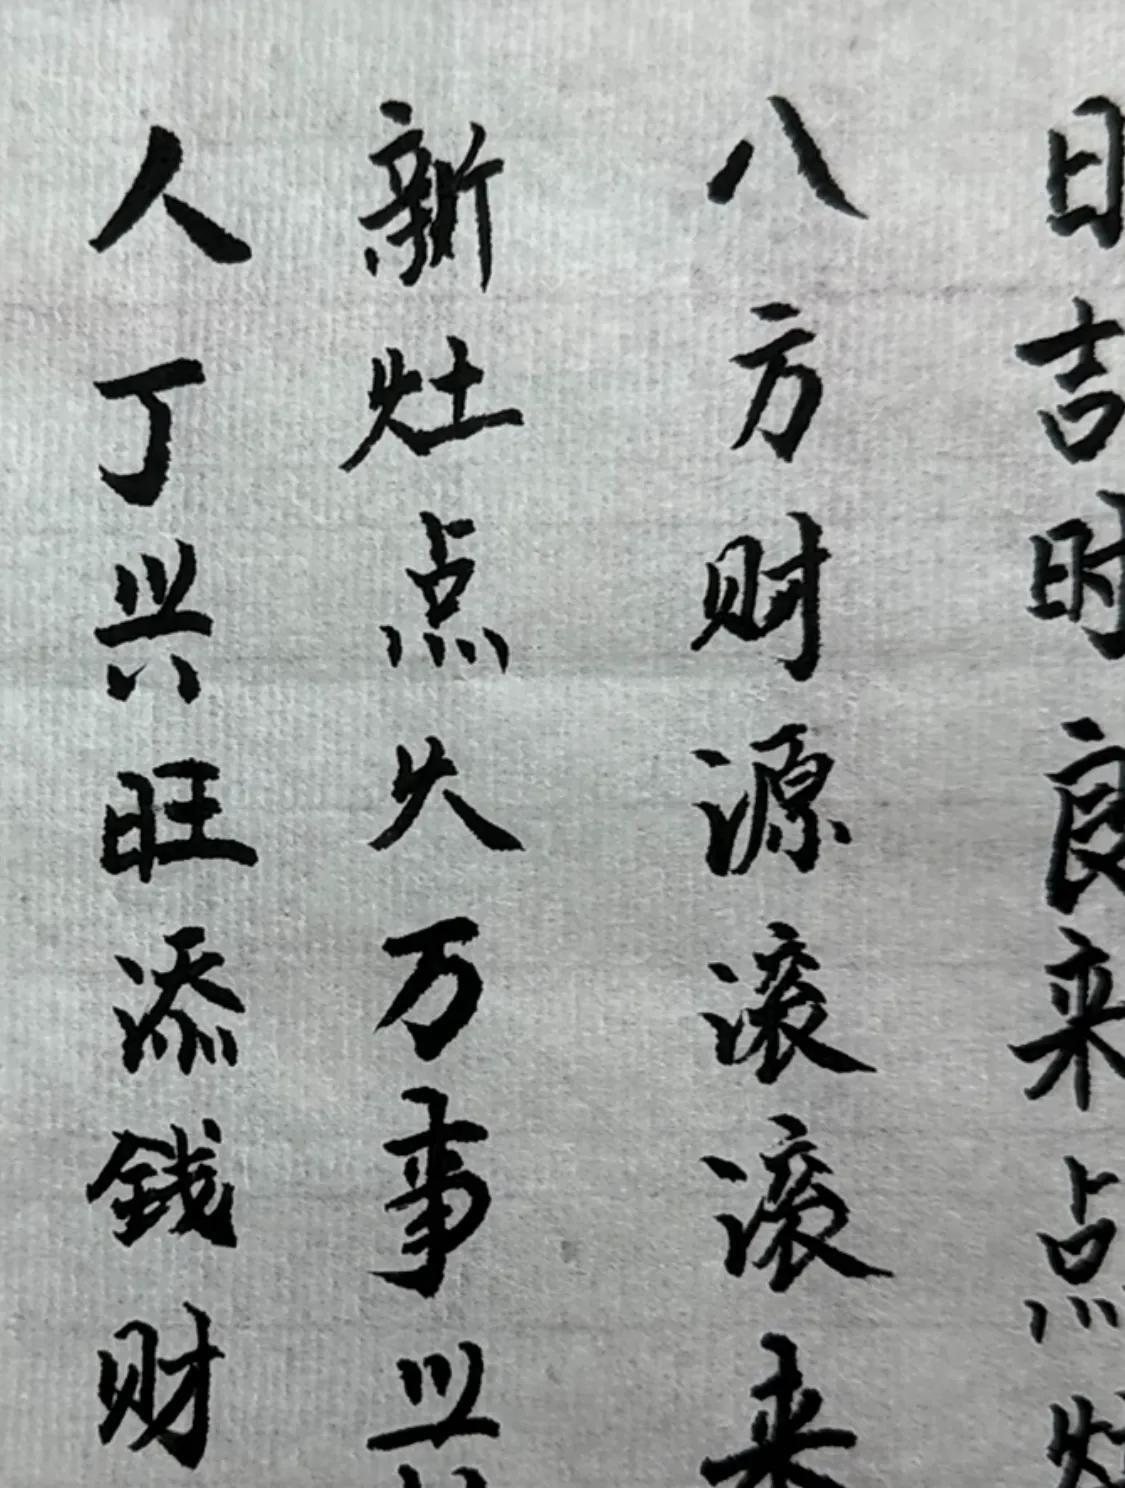 日吉时良来点灶
八方财源滚滚来
新灶点火万事兴
人丁兴旺添錢财